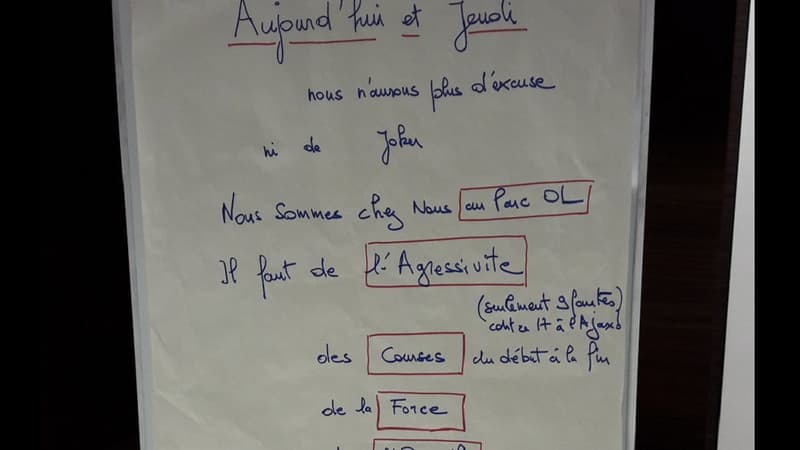 Aujourd'hui et Jeudi
nous n'aurons plus d'excuse
ni de Joker
Nous Sommes chez Nous au Parc OL
Il faut de l'Agressivite
(seulement 9 fautes)
contre 17 à l'Ajax
des Courses du début à la fin
de la Force